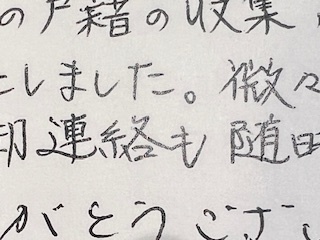 の戸籍の収集
にしました。微々
連絡も随時
がとうござい